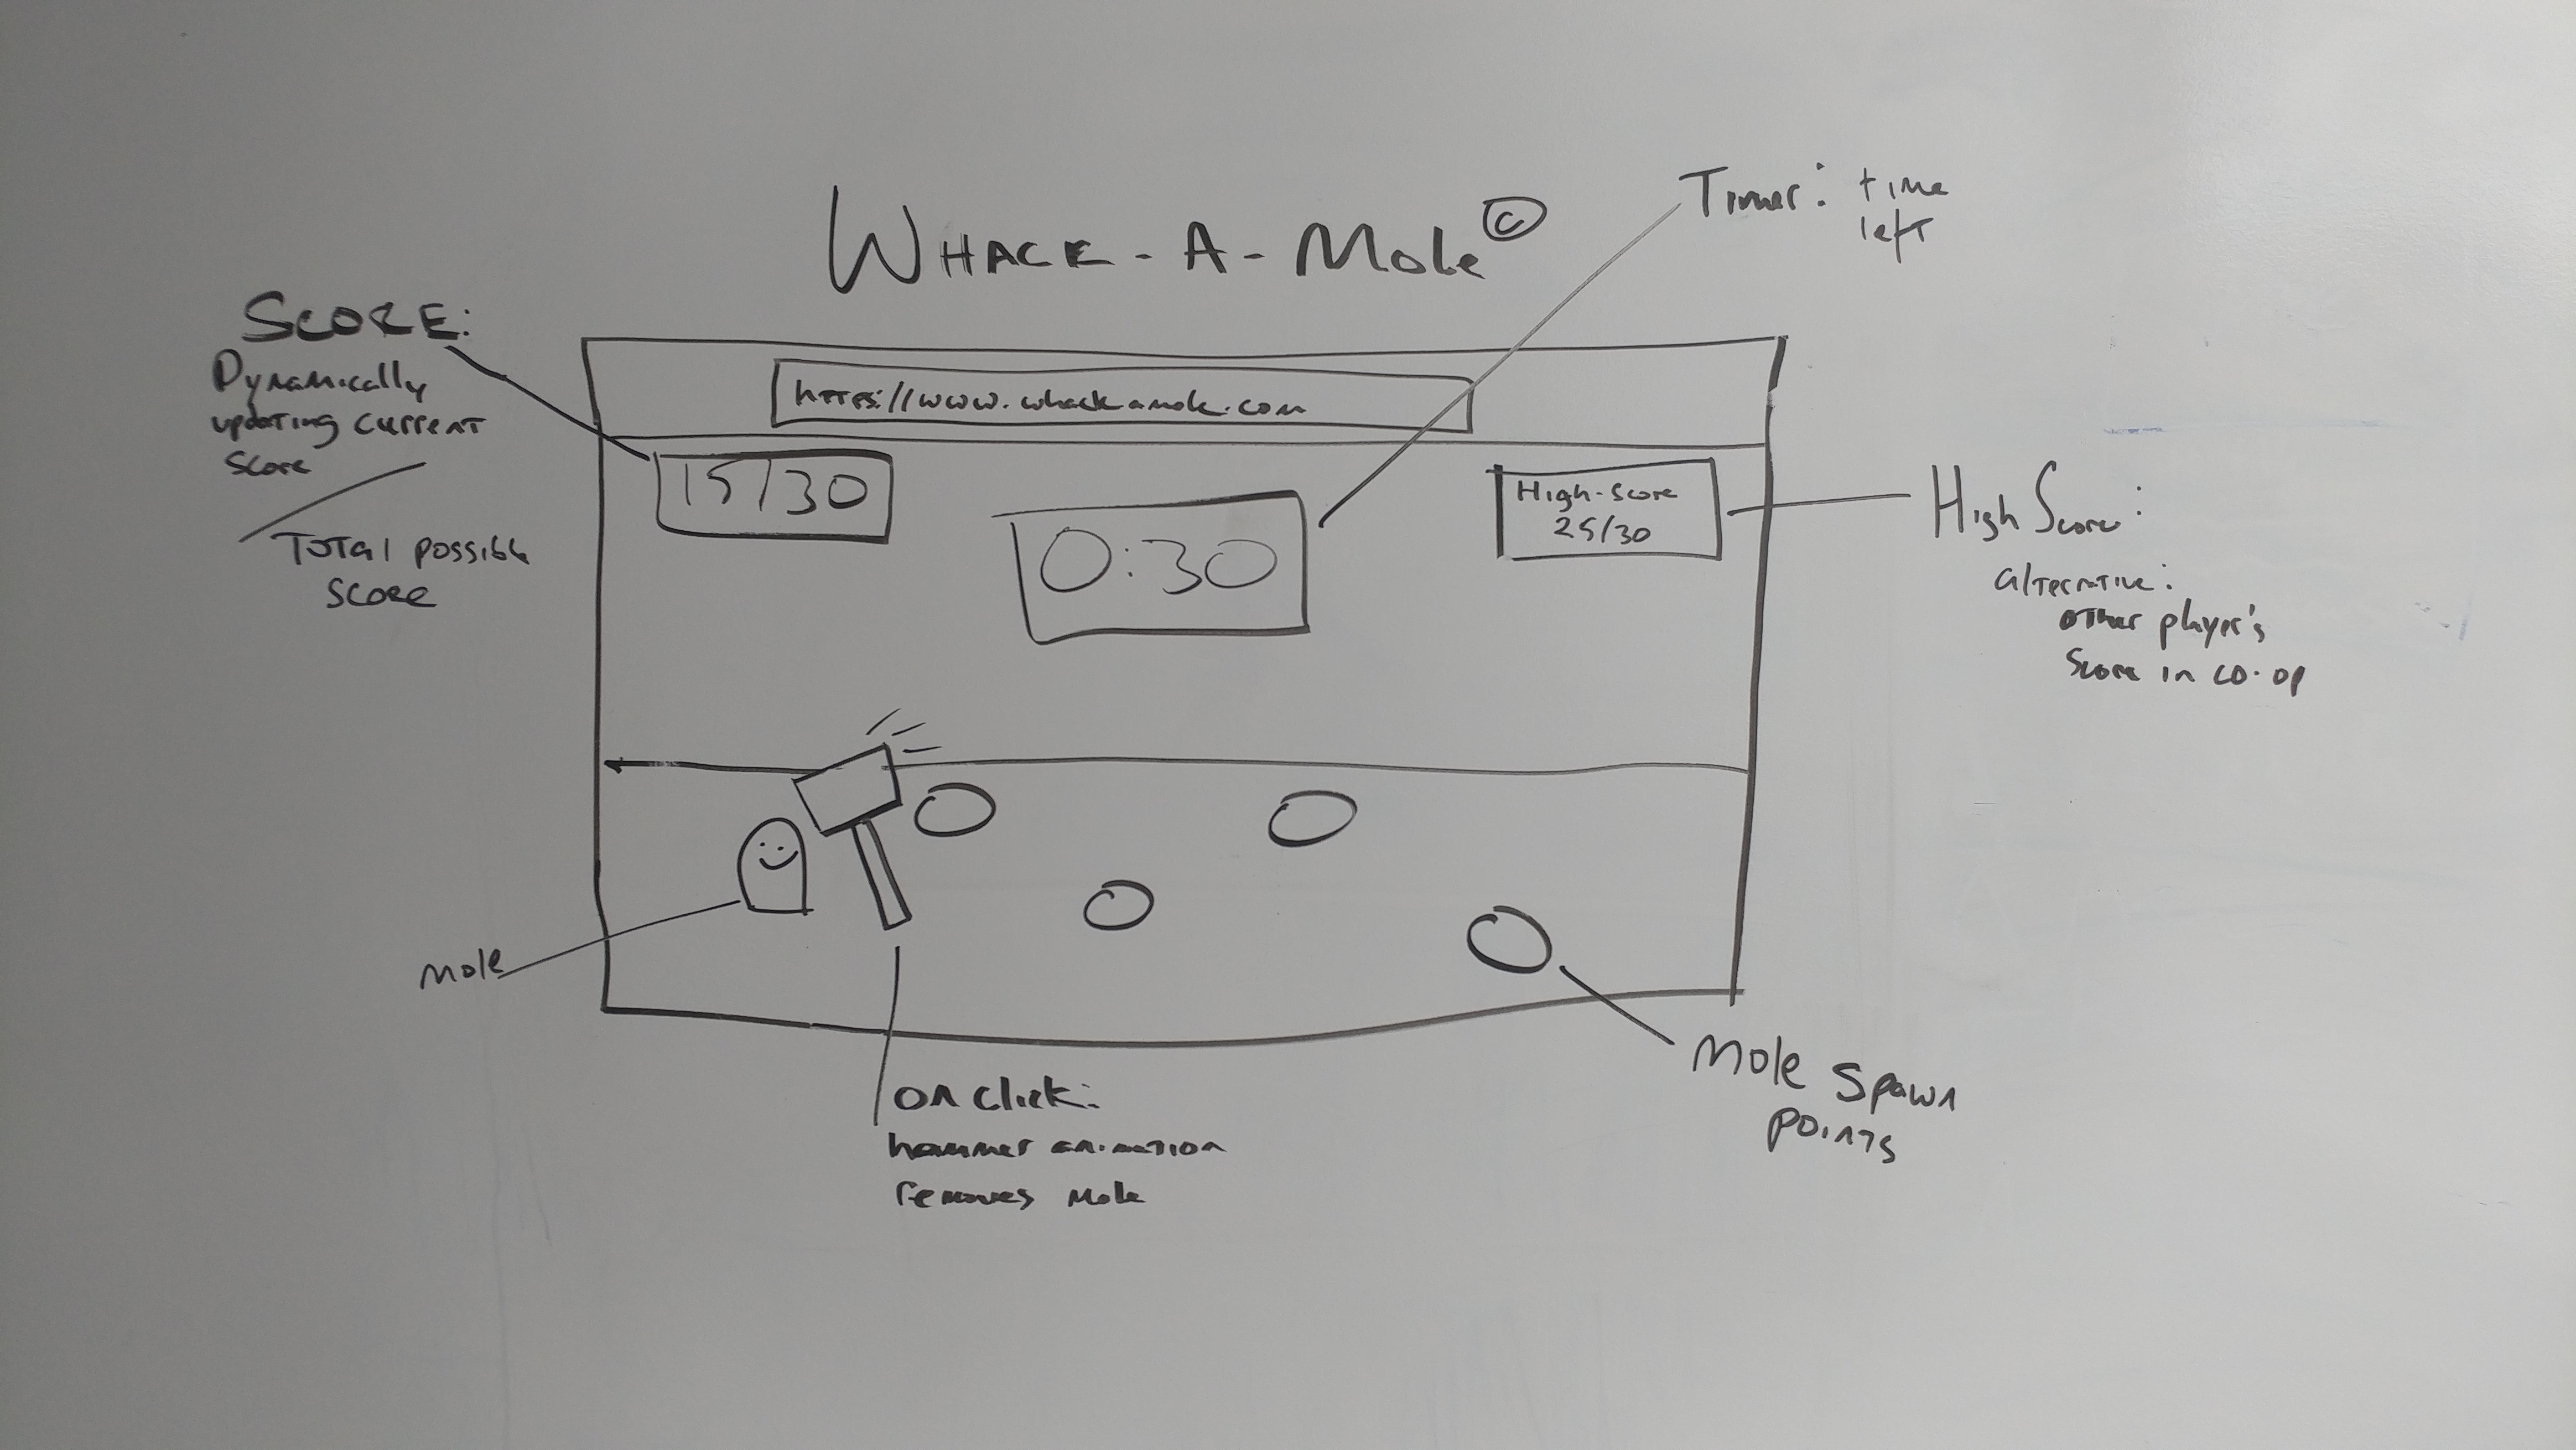 WHACK-A-Mole ©
Timer: time
left
SCORE:
Dynamically
updating current
score
/
Total possible
score
https://www.whackamole.com
15/30
0:30
High-Score
25/30
High Score:
alternative:
other player's
score in co-op
mole
on click:
hammer animation
removes mole
Mole spawn
points